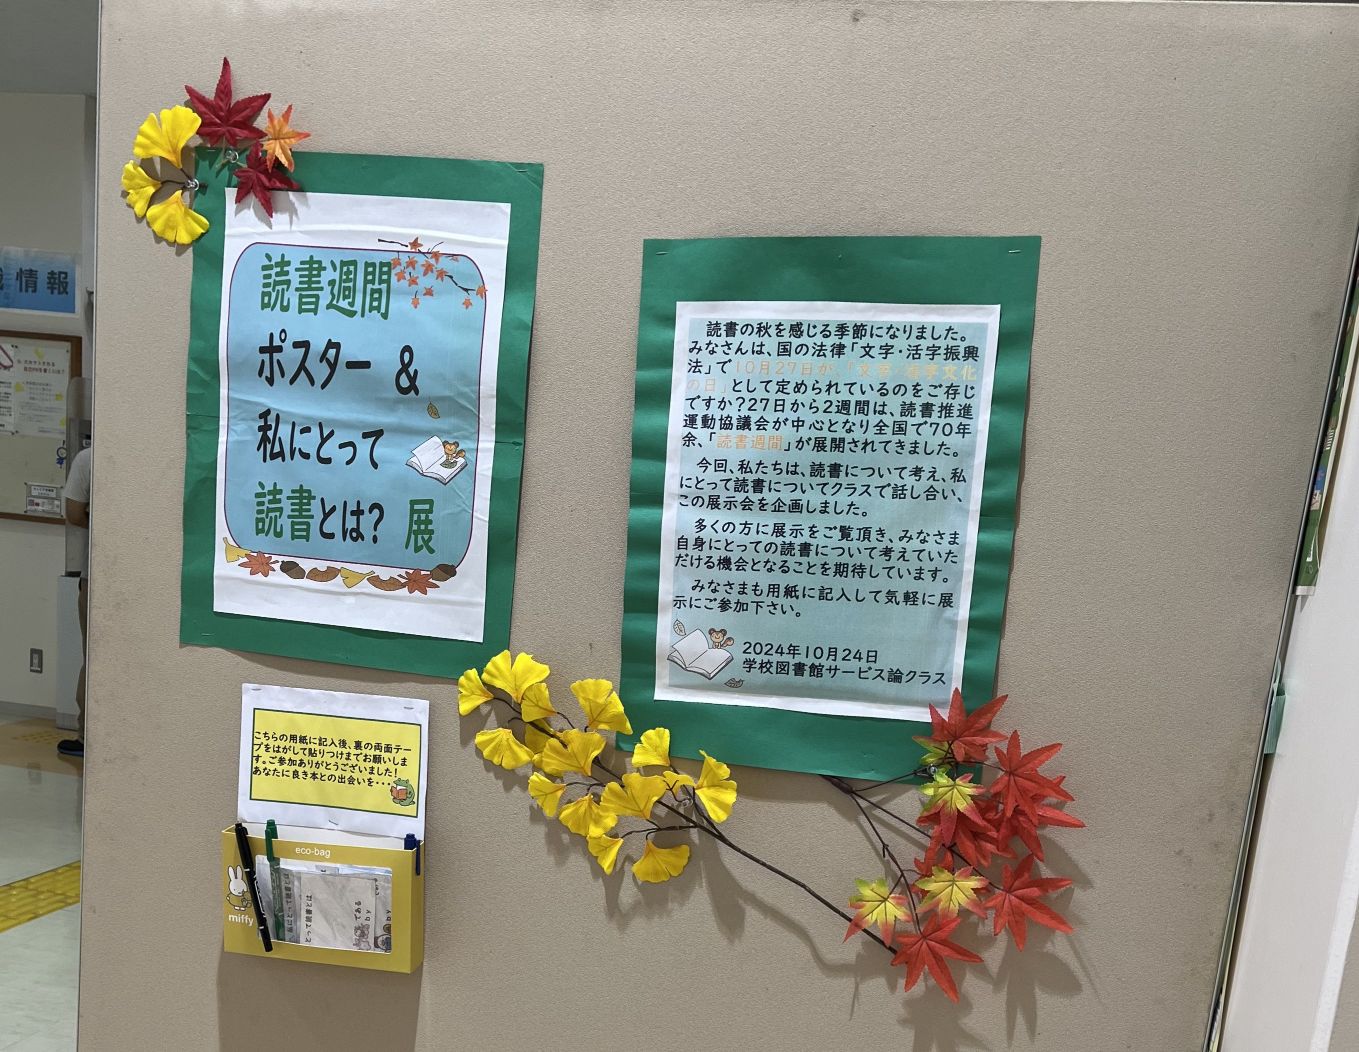 情報
読書週間
ポスター &
私にとって
読書とは? 展
読書の秋を感じる季節になりました。
みなさんは、国の法律「文字・活字振興
法」で10月27日が、「文字・活字文化
の日」として定められているのをご存じ
ですか?27日から2週間は、読書推進
運動協議会が中心となり全国で70年
余、「読書週間」が展開されてきました。
今回、私たちは、読書について考え、私
にとって読書についてクラスで話し合い、
この展示会を企画しました。
多くの方に展示をご覧頂き、みなさま
自身にとっての読書について考えていた
だける機会となることを期待しています。
みなさまも用紙に記入して気軽に展
示にご参加下さい。
2024年10月24日
学校図書館サービス論クラス
こちらの用紙に記入後、裏の両面テー
プをはがして貼りつけまでお願いしま
す。ご参加ありがとうございました!
あなたに良き本との出会いを・・・
eco-bag
miffy
である
by